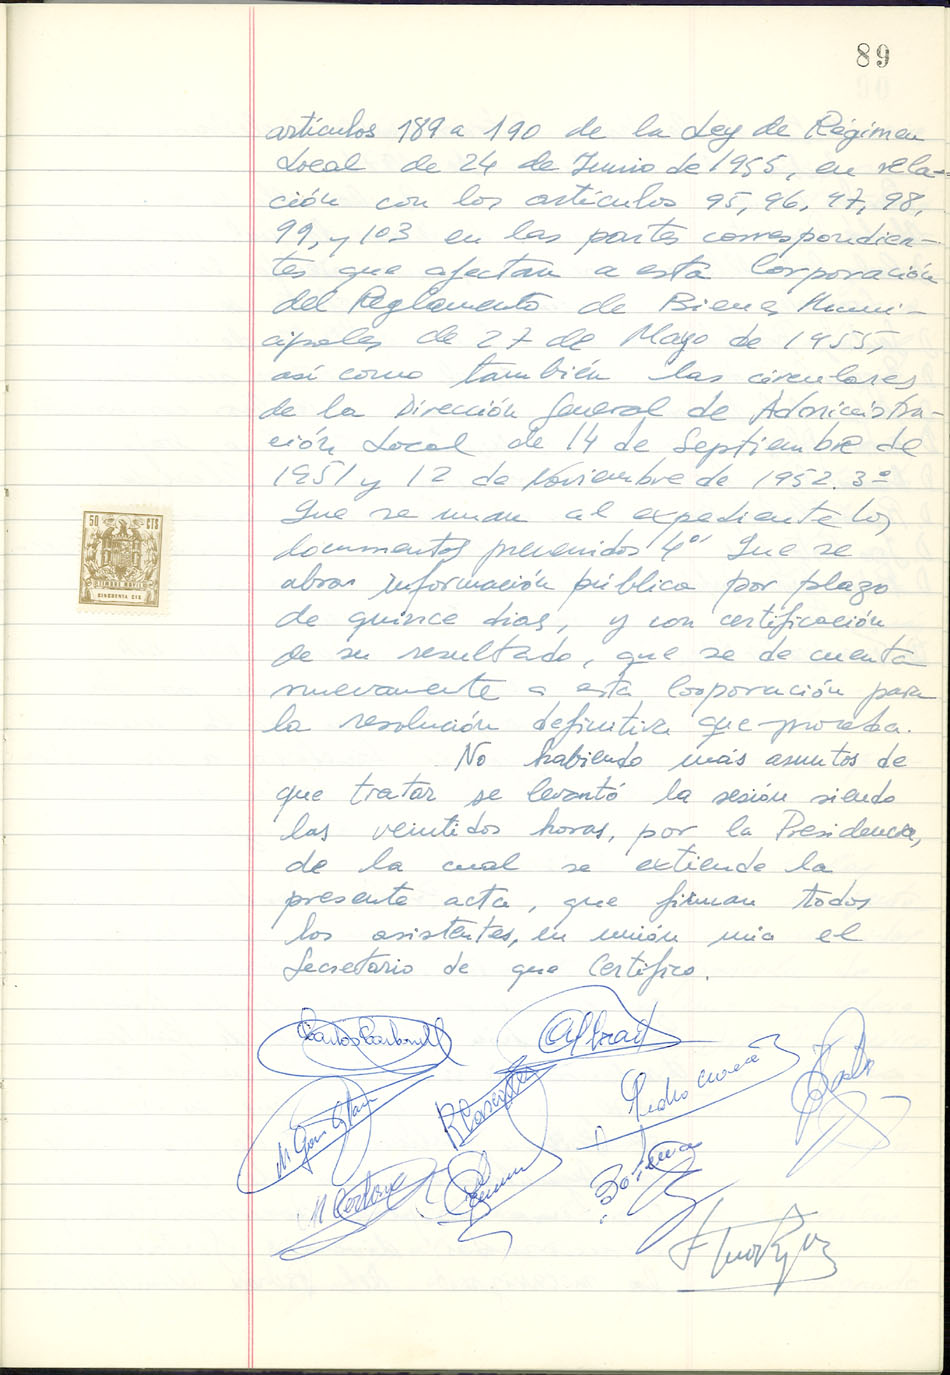 89
artículos 189 a 190 de la Ley de Régimen
Local de 24 de Junio de 1955, en rela-
ción con los artículos 95, 96, 97, 98,
99, y 103 en las partes correspondien-
tes que afectan a esta Corporación
del Reglamento de Bienes Muni-
cipales de 27 de Mayo de 1955,
así como también las circulares
de la Dirección General de Administra-
ción Local de 14 de Septiembre de
1951 y 12 de Noviembre de 1952. 3º
Que se unan al expediente los
documentos prevenidos 4º Que se
abra información pública por plazo
de quince dias, y con certificación
de su resultado, que se de cuenta
nuevamente a esta Cooporación para
la resolución definitiva que proceda.
No habiendo más asuntos de
que tratar se levantó la sesión siendo
las veintidos horas, por la Presidencia,
de la cual se extiende la
presente acta, que firman todos
los asistentes, en unión mia el
Secretario de que Certifico.
50 CTS
TIMBRE MOVIL
CINCUENTA CTS
Carlos Carbonell
Pedro